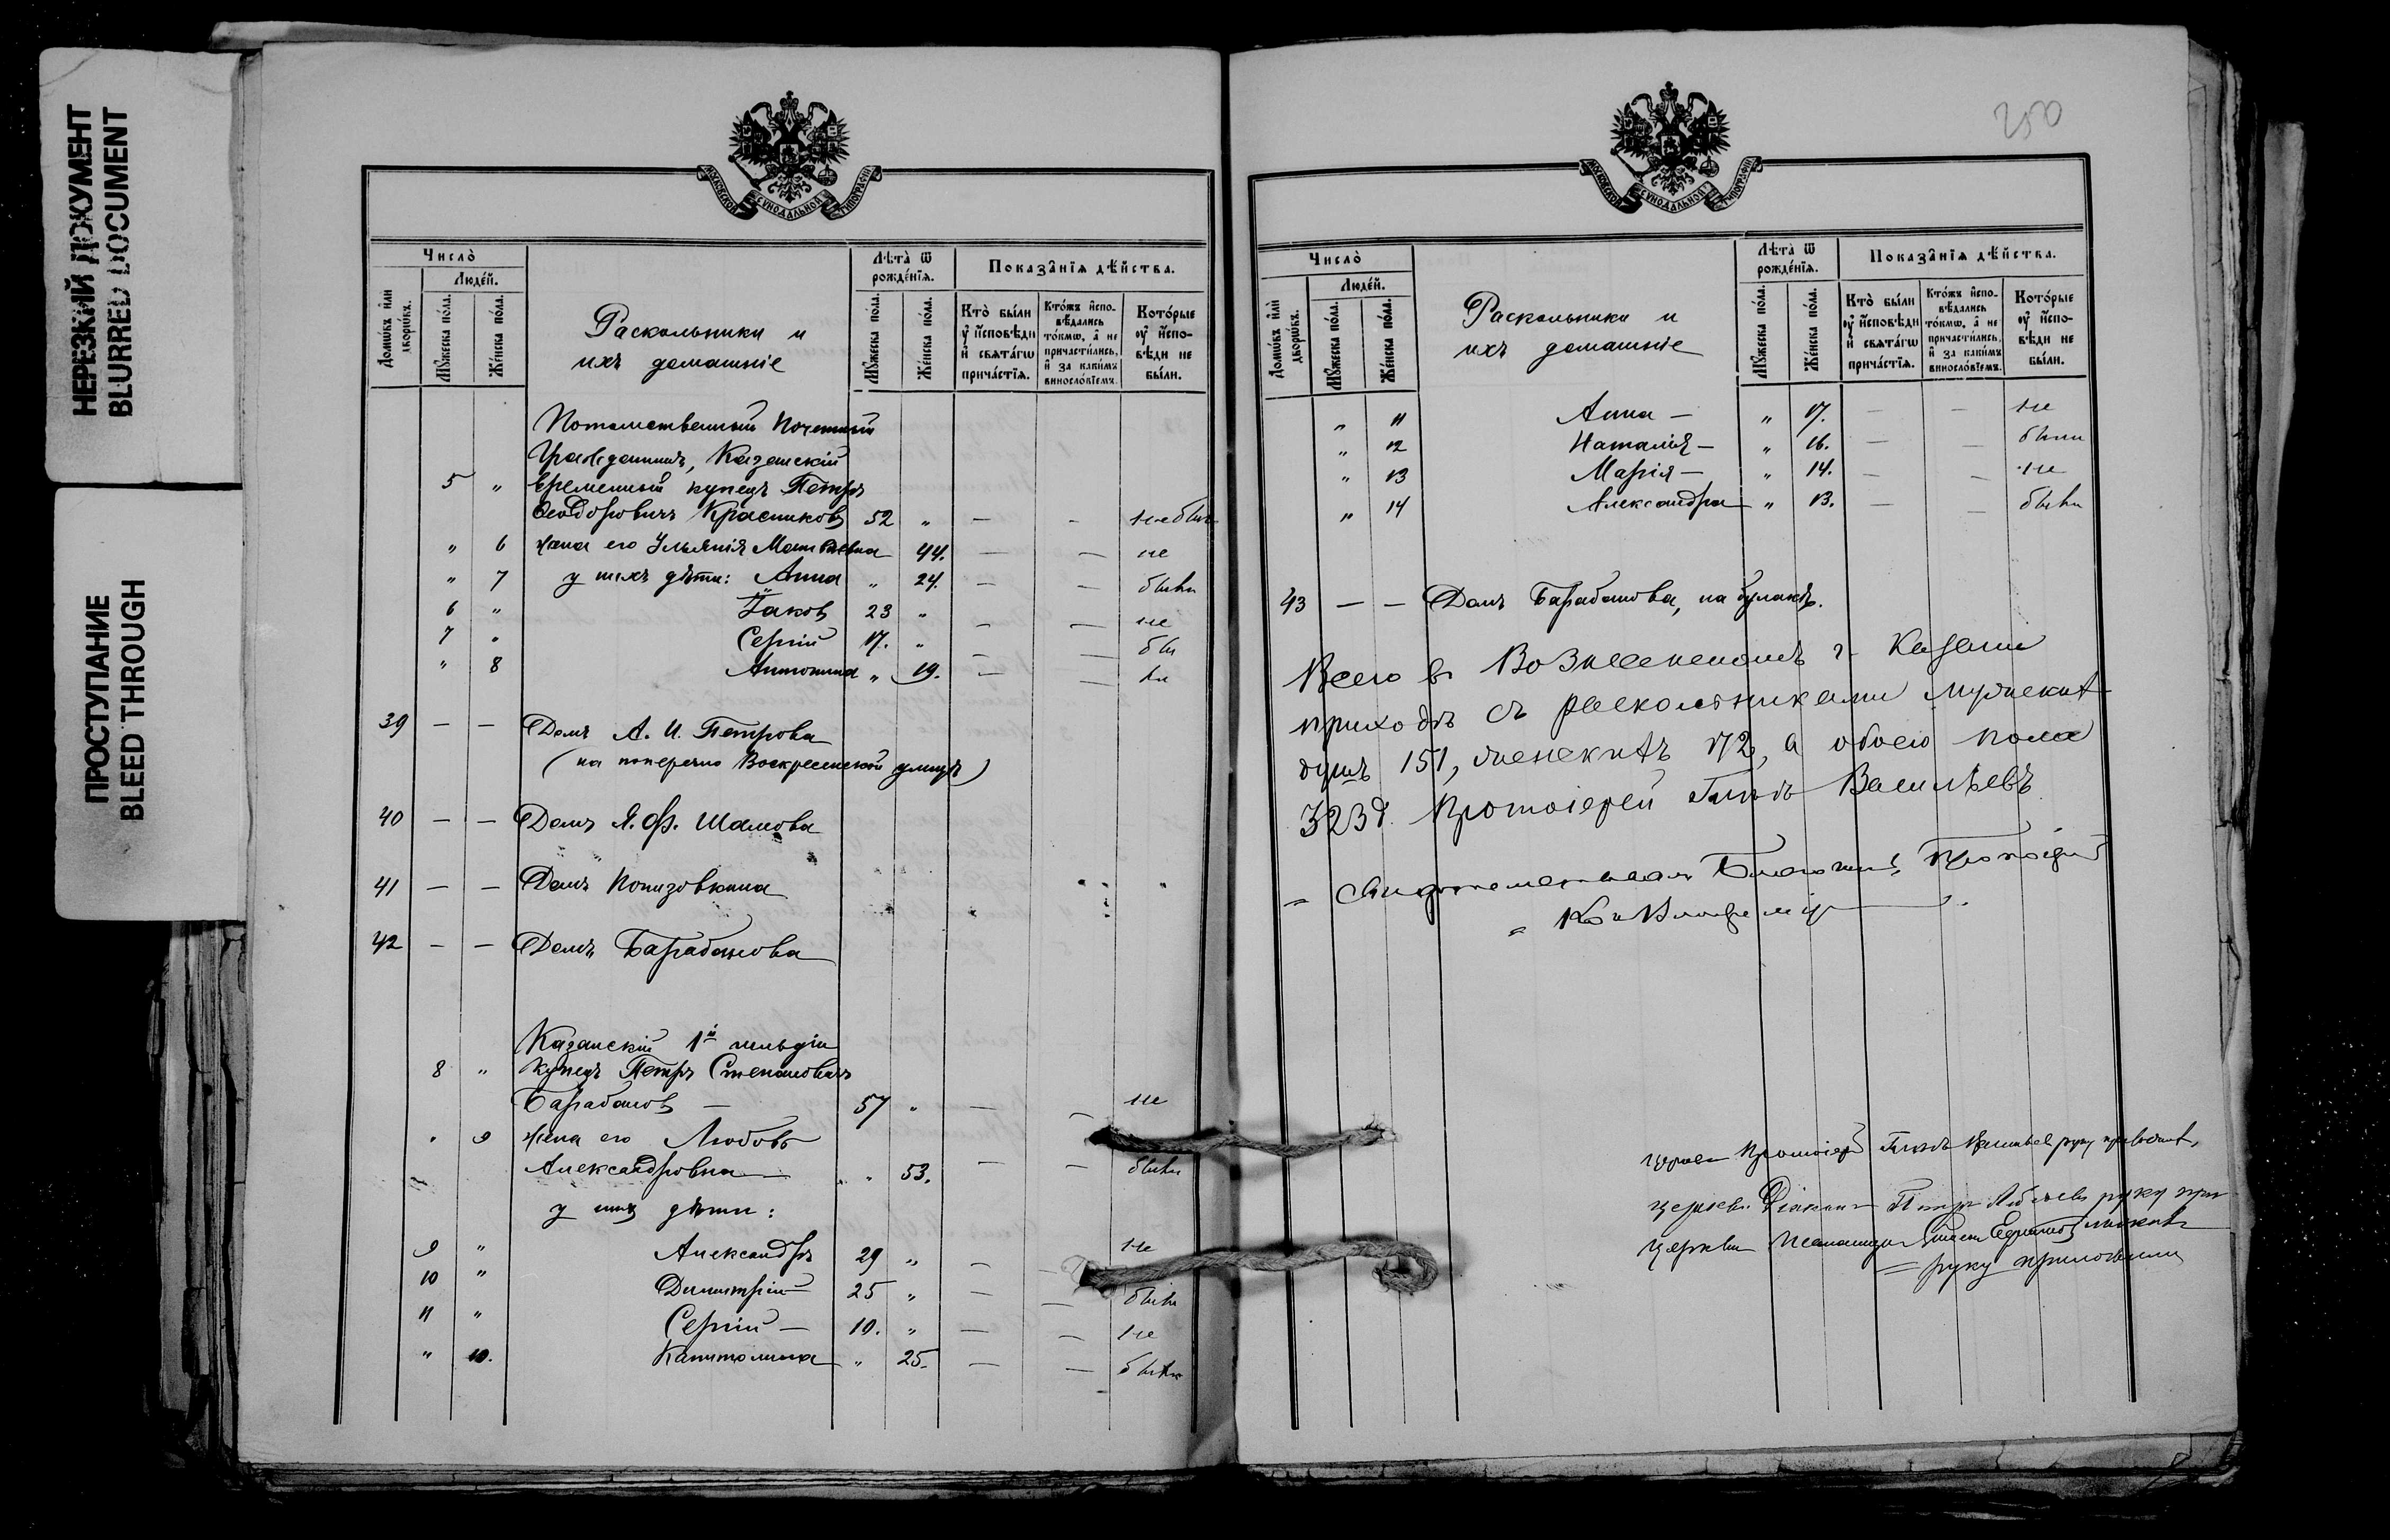 НЕРЕЗКИЙ ДОКУМЕНТ
BLURRED DOCUMENT
ПРОСТУПАНИЕ
BLEED THROUGH
МОСКОВСКОЙ СѴНОДАЛЬНОЙ ТИПОГРАФІИ
Число̀
Людéй.
Домѡ́въ и҆лѝ дворѡ́въ.
Мꙋ́жеска по́ла.
Же́нска по́ла.
Раскольники и
ихъ домашніе
Лѣта̀ ѿ рожде́нїѧ.
Мꙋ́жеска по́ла.
Же́нска по́ла.
Показа̑нїѧ дѣ́йства.
Кто̀ бы́ли оу҆ и҆сповѣди и҆ свѧта́гѡ прича́стїѧ.
Кто́жъ и҆спо-вѣ́дались то́кмѡ, а҆ не причасти́лись, и҆ за каки́мъ винослѡ́вїемъ.
Кото́рые оу҆ и҆спо-вѣди не бы́ли.
Потомственный Почетный
Гражданинъ, Казанскій
5 " временный купецъ Петръ
Ѳеодоровичъ Красниковъ 52 " — - не был
" 6 жена его Ульянія Матвѣевна 44. — — не
" 7 у нихъ дѣти: Анна " 24. — — были
6 " Іаковъ 23 " — — не
7 " Сергій 17. " — — бы
" 8 Антонина " 19. — — ли
39 — — Домъ А. И. Петрова
(на поперечно Воскресенской улицѣ)
40 — — Домъ Я. Ф. Шамова
41 — — Домъ Понизовкина
42 — — Домъ Барабанова
Казанскій 1й гильдіи
8 " купецъ Петръ Степановичъ
Барабановъ — 57 " — — не
" 9 жена его Любовь
Александровна " 53. — — были
у нихъ дѣти:
9 " Александръ 29 " — — не
10 " Димитрій 25 " — — были
11 " Сергій — 19. " — — не
" 10. Капитолина " 25. — — были
250
МОСКОВСКОЙ СѴНОДАЛЬНОЙ ТИПОГРАФІИ
Число̀
Людéй.
Домѡ́въ и҆лѝ дворѡ́въ.
Мꙋ́жеска по́ла.
Же́нска по́ла.
Раскольники и
ихъ домашніе
Лѣта̀ ѿ рожде́нїѧ.
Мꙋ́жеска по́ла.
Же́нска по́ла.
Показа̑нїѧ дѣ́йства.
Кто̀ бы́ли оу҆ и҆сповѣди и҆ свѧта́гѡ прича́стїѧ.
Кто́жъ и҆спо-вѣ́дались то́кмѡ, а҆ не причасти́лись, и҆ за каки́мъ винослѡ́вїемъ.
Кото́рые оу҆ и҆спо-вѣди не бы́ли.
" 11 Анна — " 17. — — не
" 12 Наталія — " 16. — — были
" 13 Марія — " 14. — — не
" 14 Александра " 13. — — были
43 — — Домъ Барабанова, на булакѣ.
Всего въ Вознесенскомъ г. Казани
приходѣ съ раскольниками мужескихъ
душъ 151, женскихъ 172, а обоего пола
323 д. Протоіерей Гпѣбъ Васильевъ
Благочин. Протоіерей
Протоіерей Васильевъ руку приложилъ,
церкви Діаконъ Петръ руку при
церкви Псаломщикъ ложилъ
руку приложилъ